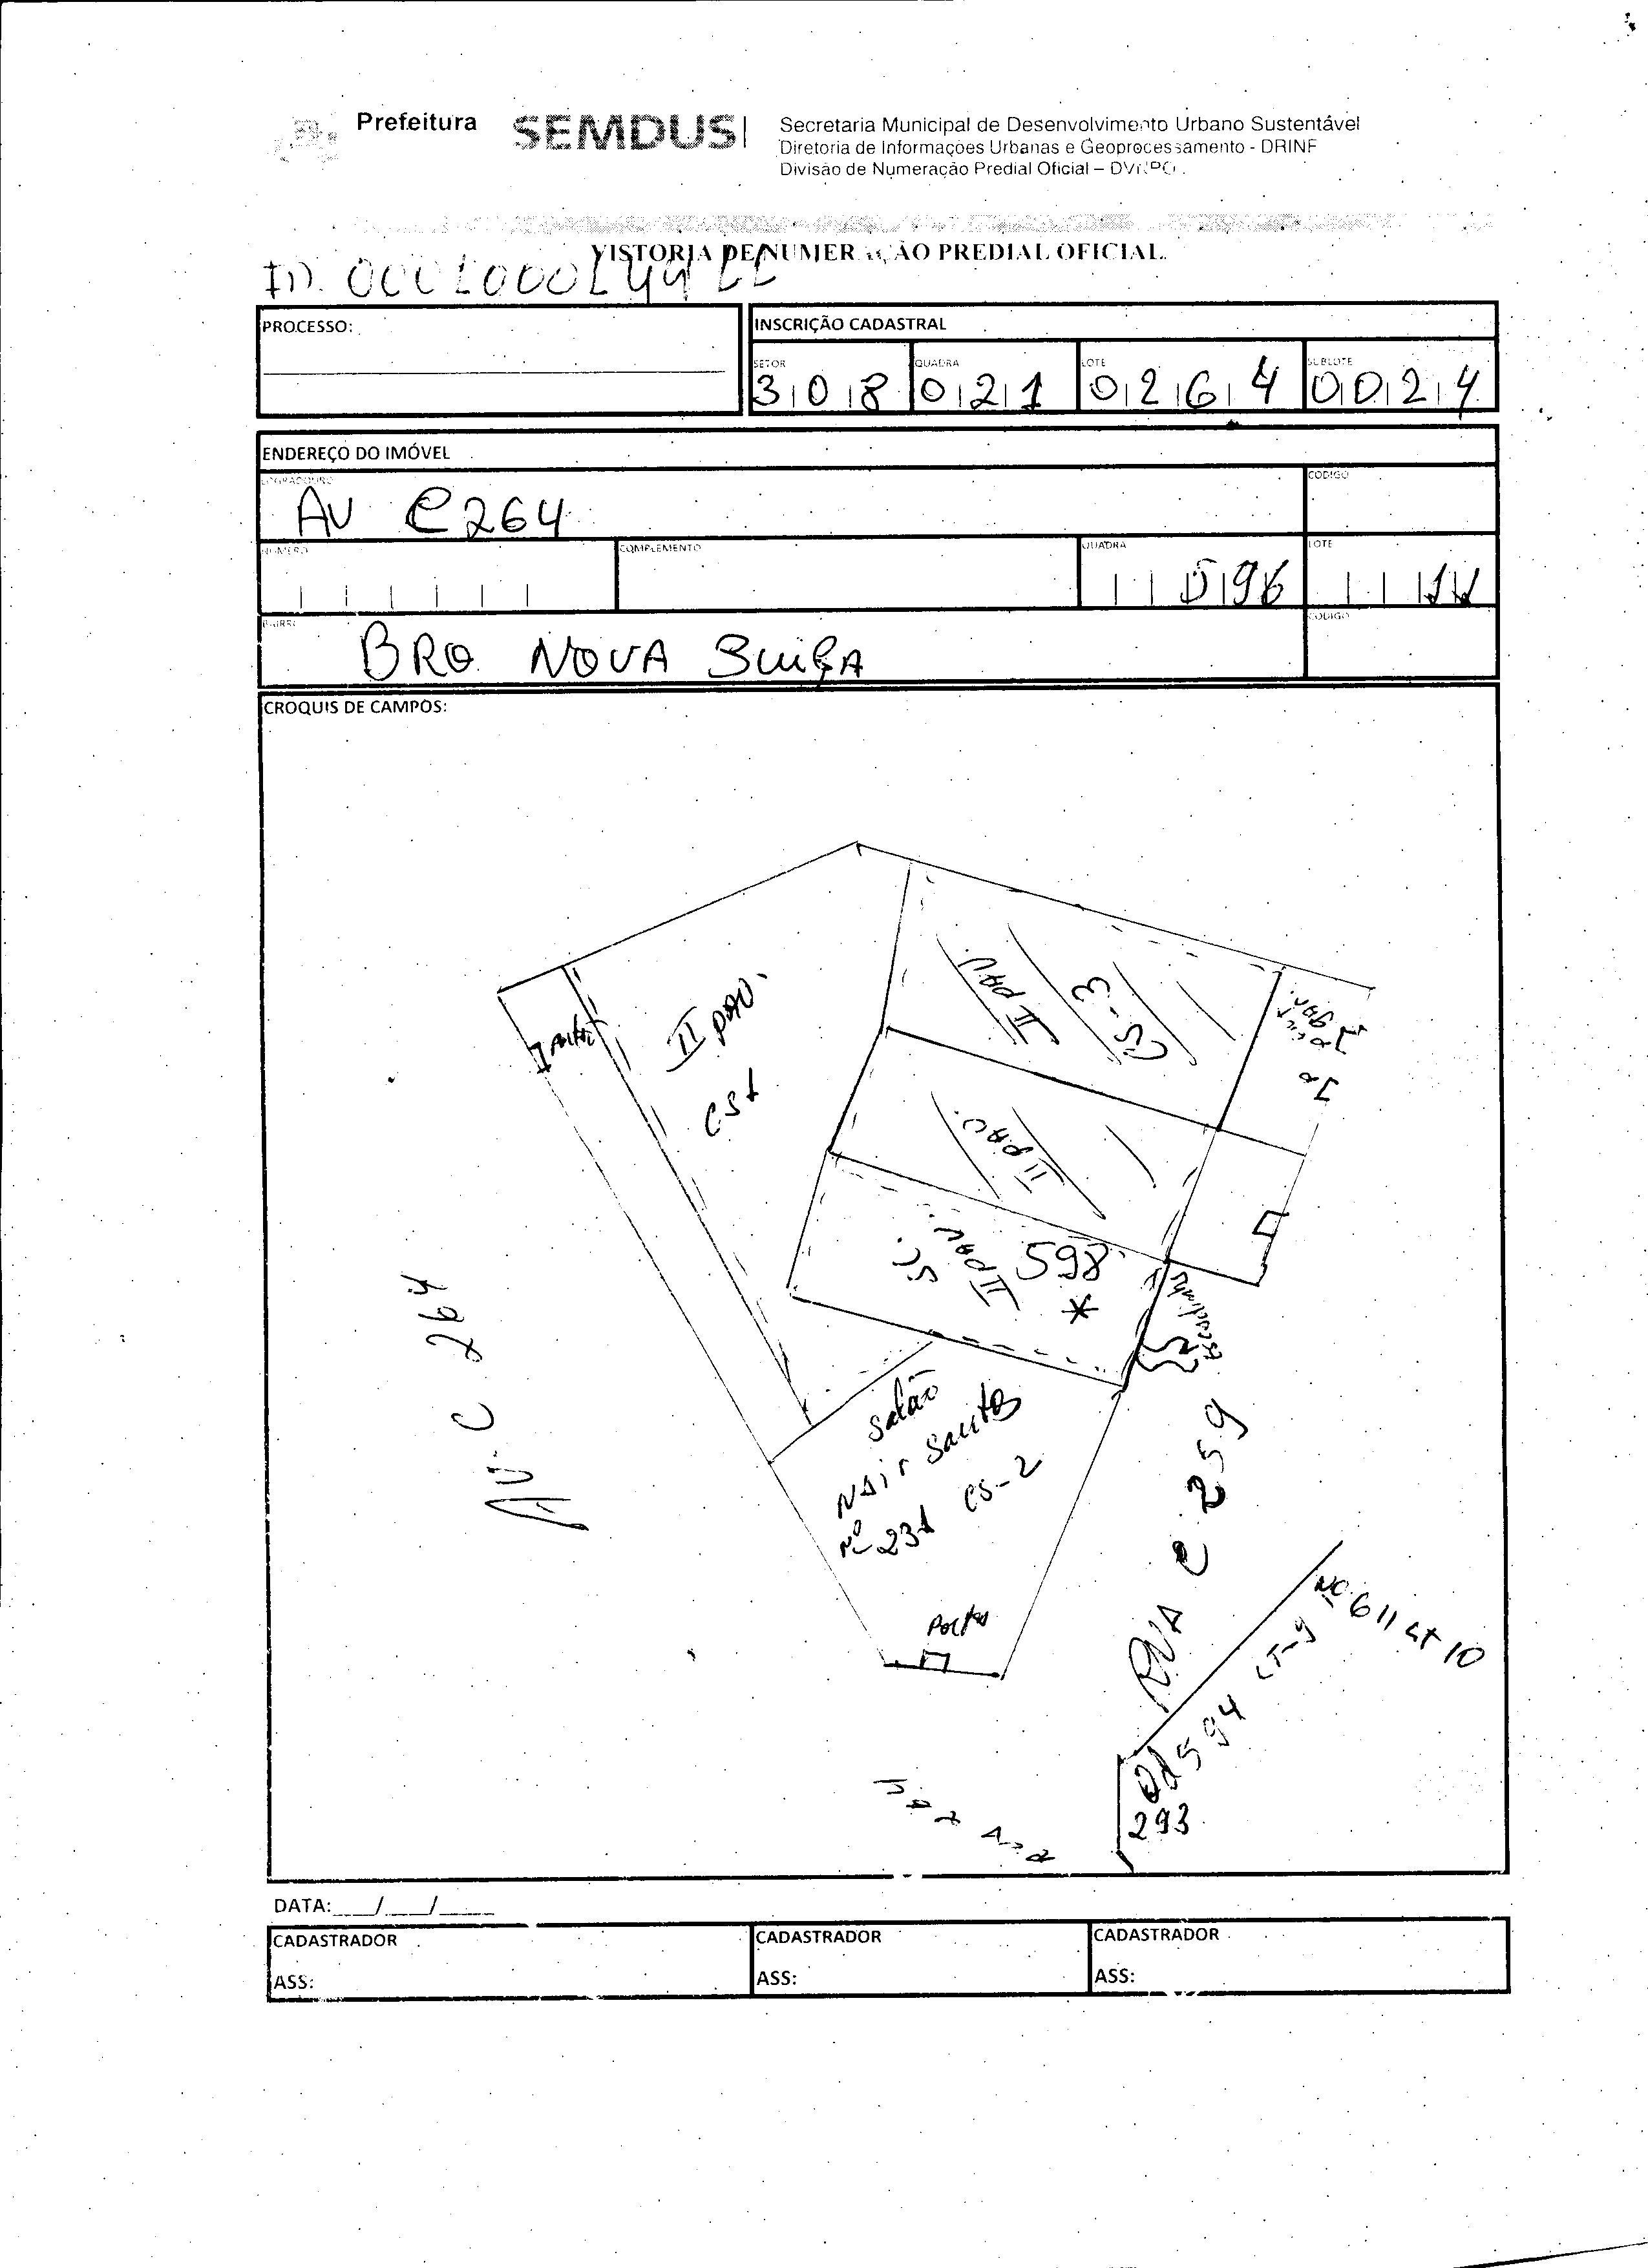 Prefeitura
SEMDUS
Secretaria Municipal de Desenvolvimento Urbano Sustentável
Diretoria de Informações Urbanas e Geoprocessamento - DRINF
Divisão de Numeração Predial Oficial –
VISTORIA DE NUMERAÇÃO PREDIAL OFICIAL
PROCESSO:
INSCRIÇÃO CADASTRAL
SETOR QUADRA LOTE SUBLOTE
308 021 0264 0024
ENDEREÇO DO IMÓVEL
LOGRADOURO CODIGO
AV C264
NUMERO COMPLEMENTO QUADRA LOTE
596
BAIRRO CODIGO
BRO NOVA SUIÇA
CROQUIS DE CAMPOS:
II PAV.
CS-3
II PAV.
CS1
II PAV.
II PAV.
598
*
escadinha
AV. C 264
Salão
Nair Santos
Nº 231 CS-2
Portão
RUA C 259
Nº 611 LT 10
Qd 594 LT-9
293
DATA:___/___/____
CADASTRADOR CADASTRADOR CADASTRADOR
ASS: ASS: ASS: